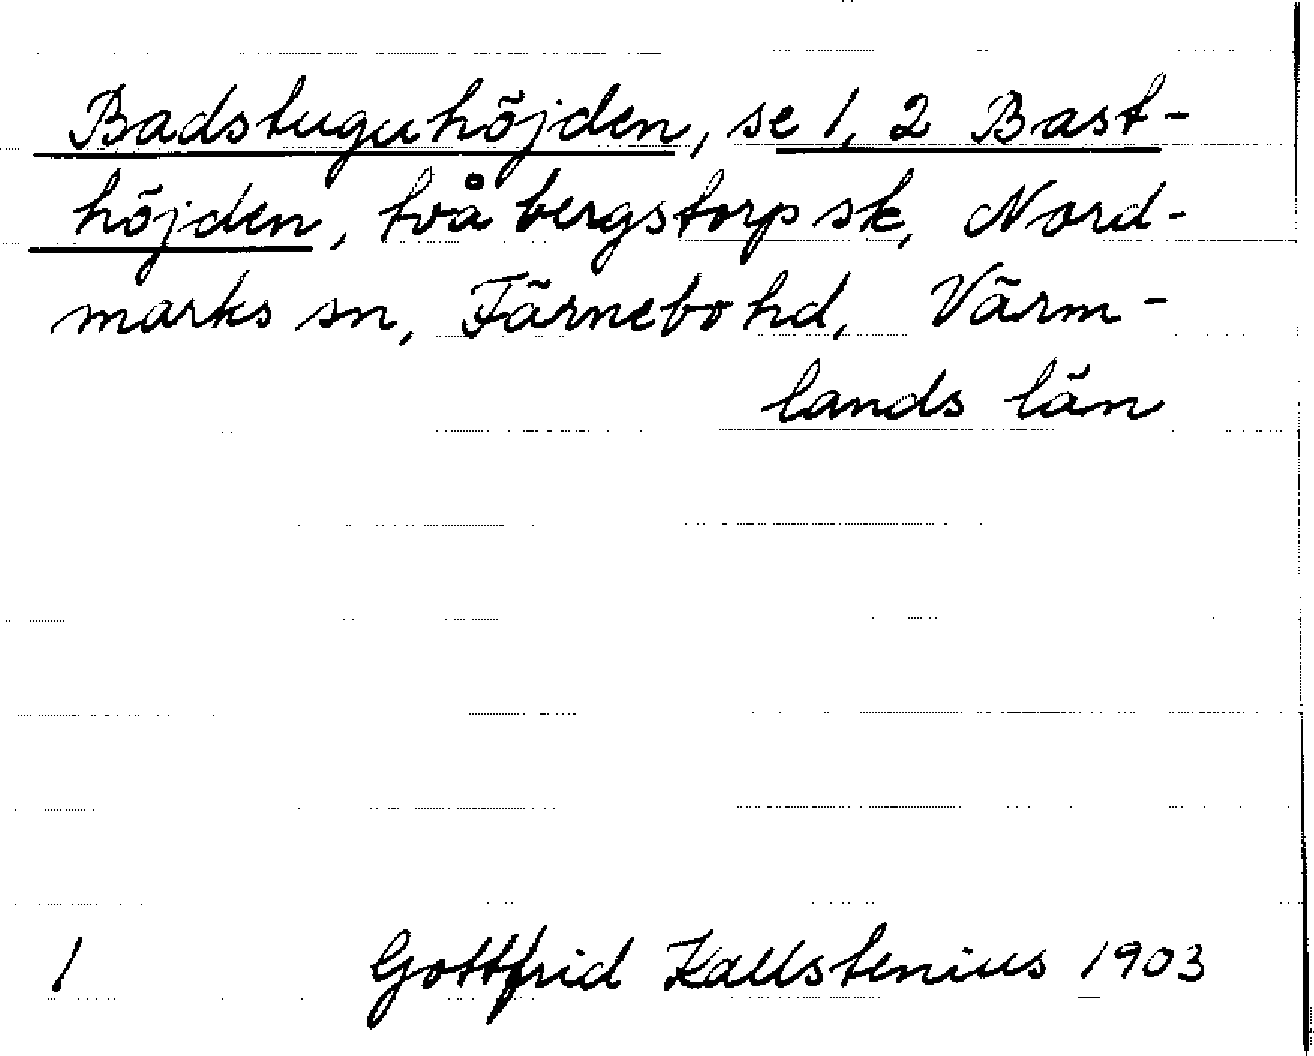 Badstuguhöjden, se 1, 2 Bast-
höjden, två bergstorp sk, Nord-
marks sn, Färnebo hd, Värm-
lands län
1 Gottfrid Kallstenius 1903